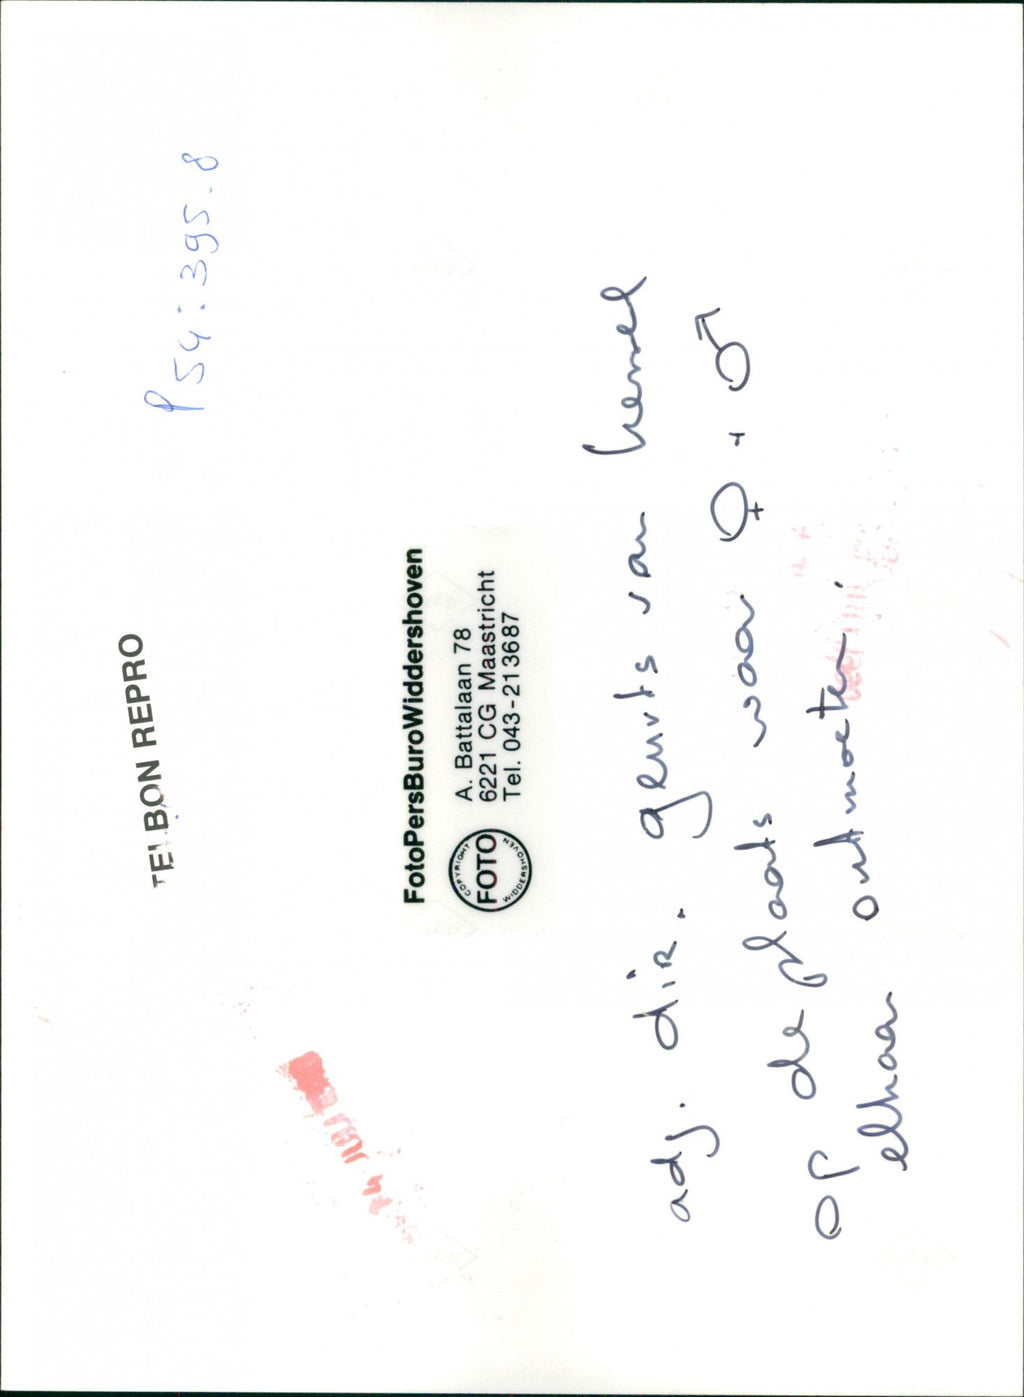 TELBON REPRO
P 54:395.8
FotoPersBuroWiddershoven
COPYRIGHT
FOTO
WIDDERSHOVEN
A. Battalaan 78
6221 CG Maastricht
Tel. 043-213687
adj. dir. geurts van hemel
op de plaats waar ♀ + ♂
elkaar ontmoeten